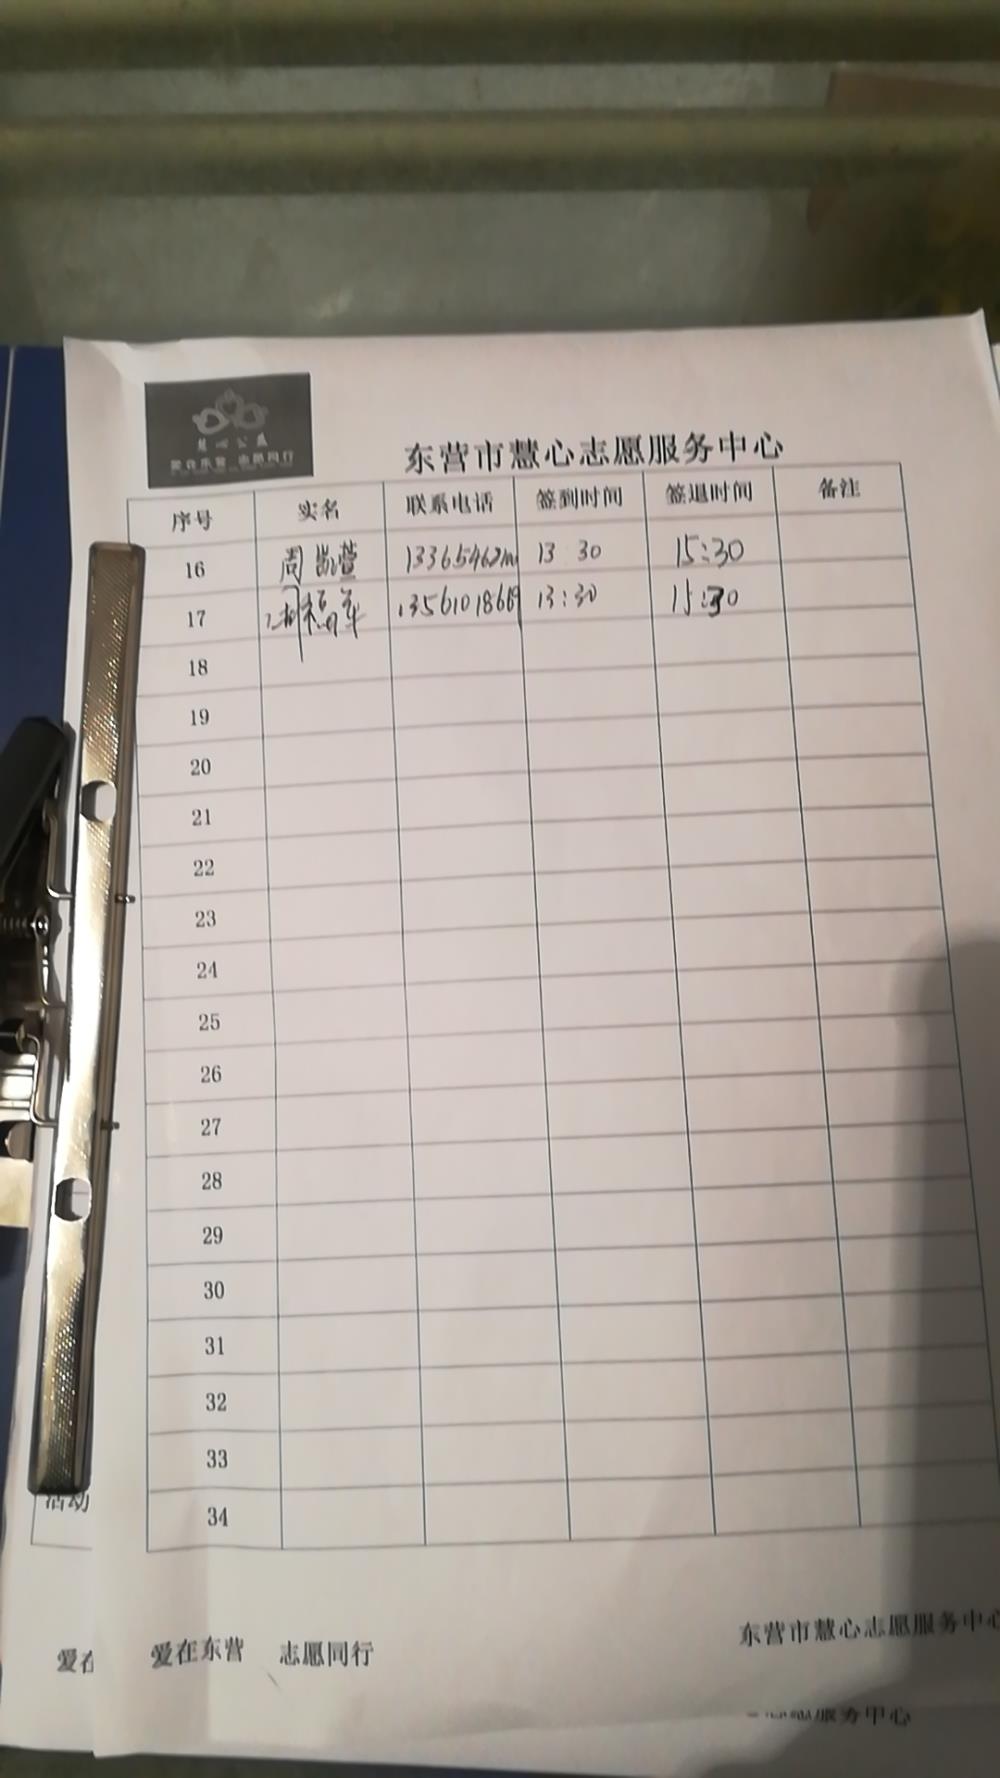 慧心公益
爱在东营 志愿同行
东营市慧心志愿服务中心
序号 实名 联系电话 签到时间 签退时间 备注
16 周凯萱 13 30 15:30
17 13561018669 13:30 15:30
18
19
20
21
22
23
24
25
26
27
28
29
30
31
32
33
34
活动
爱在 爱在东营 志愿同行 东营市慧心志愿服务中心
服务中心